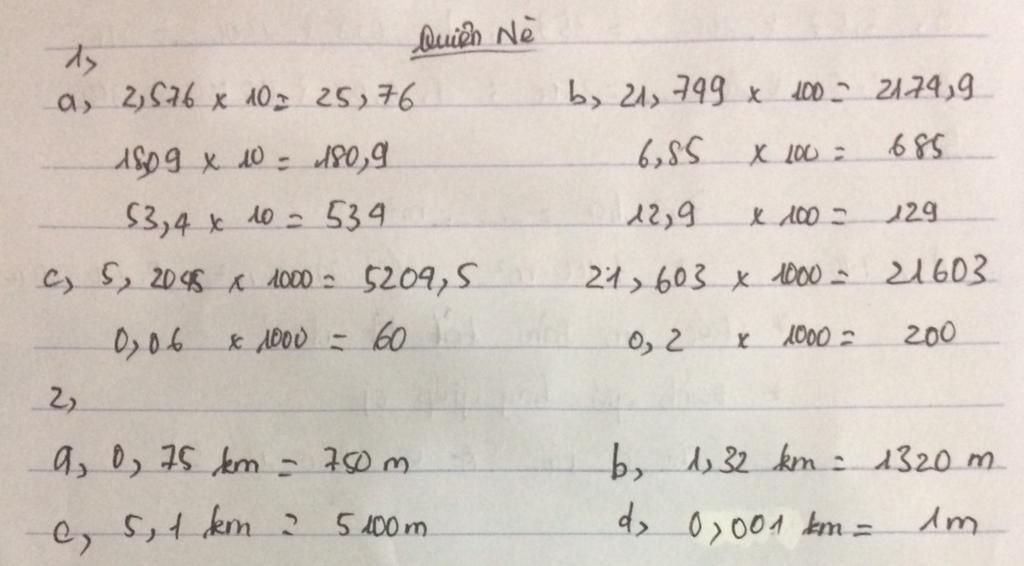 Quiên Nè
1,
a, 2,576 x 10 = 25,76 b, 21,799 x 100 = 2179,9
18,09 x 10 = 180,9 6,85 x 100 = 685
53,4 x 10 = 534 12,9 x 100 = 129
c, 5,2095 x 1000 = 5209,5 21,603 x 1000 = 21603
0,06 x 1000 = 60 0,2 x 1000 = 200
2,
a, 0,75 km = 750 m b, 1,32 km = 1320 m
c, 5,1 km = 5100m d, 0,001 km = 1m